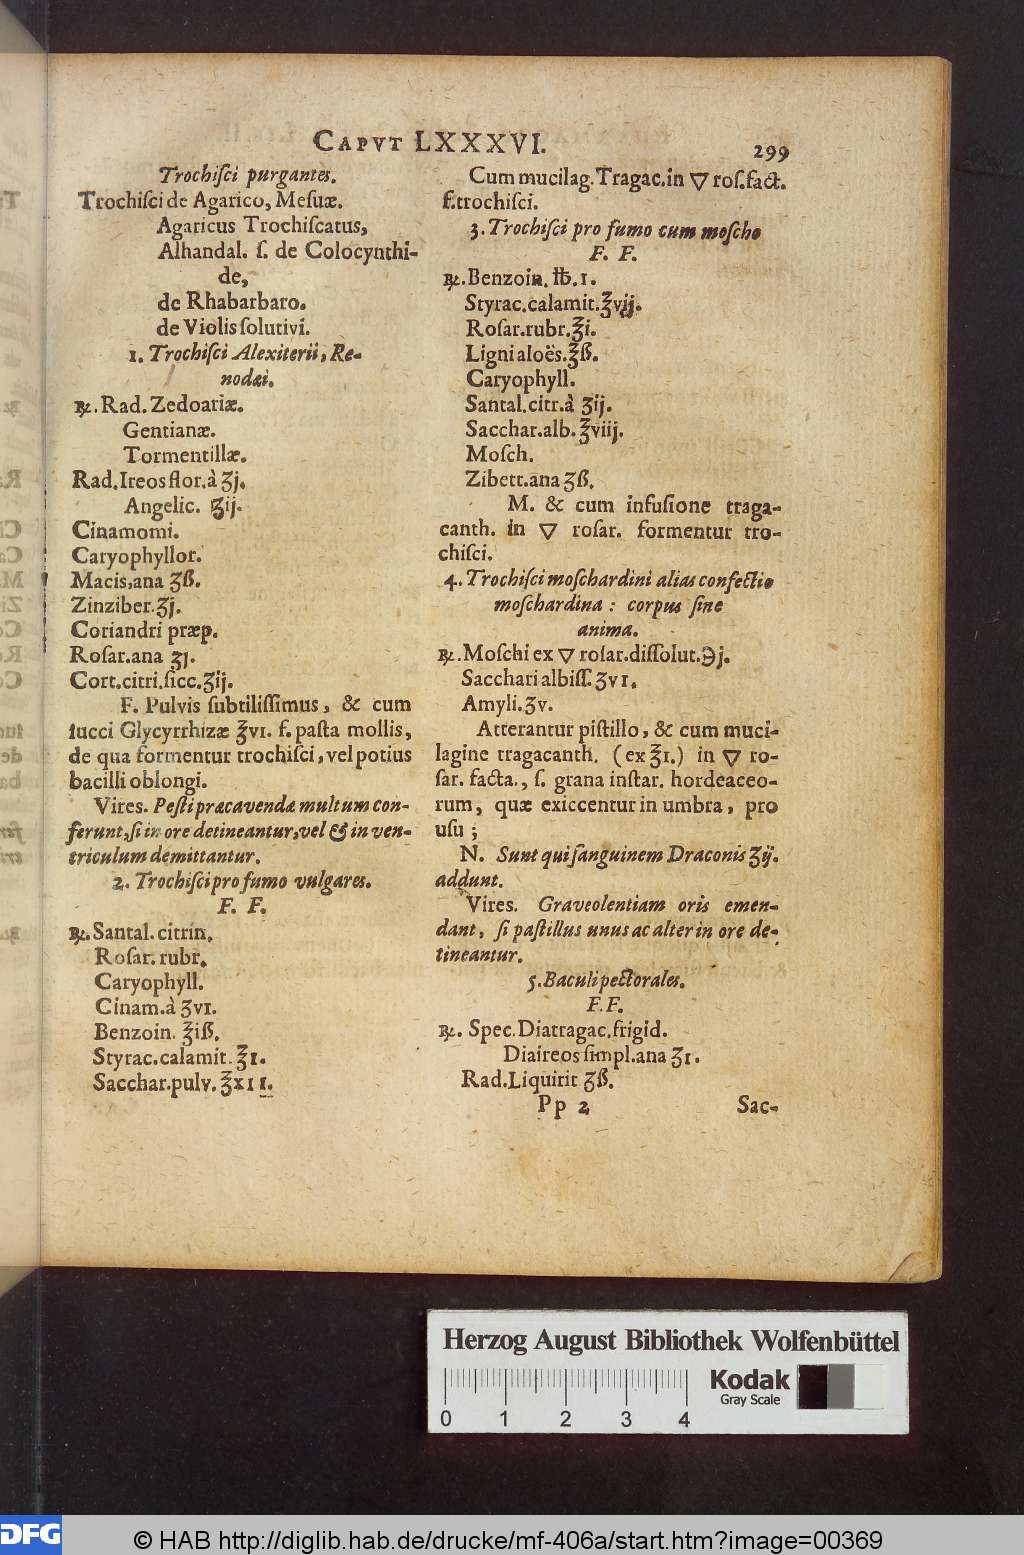 CAPVT LXXXVI.
299
Trochiſci purgantes.
Trochiſci de Agarico, Meſuæ.
Agaricus Trochiſcatus,
Alhandal. ſ. de Colocynthi-
de,
de Rhabarbaro.
de Violis ſolutivi.
1. Trochiſci Alexiterii, Re-
nodæi.
℞. Rad. Zedoariæ.
Gentianæ.
Tormentillæ.
Rad. Ireos flor. à ʒj.
Angelic. ʒij.
Cinamomi.
Caryophyllor.
Macis, ana ʒß.
Zinziber. ʒj.
Coriandri præp.
Roſar. ana ʒj.
Cort. citri. ſicc. ʒij.
F. Pulvis ſubtiliſſimus, & cum
ſucci Glycyrrhizæ ℥vı. f. paſta mollis,
de qua formentur trochiſci, vel potius
bacilli oblongi.
Vires. Peſti præcavendæ multum con-
ferunt, ſi in ore detineantur, vel & in ven-
triculum demittantur.
2. Trochiſci pro fumo vulgares.
F. F.
℞. Santal. citrin.
Roſar. rubr.
Caryophyll.
Cinam. à ʒvı.
Benzoin. ℥iß.
Styrac. calamit. ℥ı.
Sacchar. pulv. ℥xıı.
Cum mucilag. Tragac. in ▽ roſ. fact.
f. trochiſci.
3. Trochiſci pro fumo cum moſcho
F. F.
℞. Benzoin. ℔. 1.
Styrac. calamit. ℥vij.
Roſar. rubr. ℥i.
Ligni aloës. ℥ß.
Caryophyll.
Santal. citr. à ʒij.
Sacchar. alb. ℥viij.
Moſch.
Zibett. ana ʒß.
M. & cum infuſione traga-
canth. in ▽ roſar. formentur tro-
chiſci.
4. Trochiſci moſchardini alias confectio
moſchardina : corpus ſine
anima.
℞. Moſchi ex ▽ roſar. diſſolut. ℈j.
Sacchari albiſſ. ʒvı.
Amyli. ʒv.
Atterantur piſtillo, & cum muci-
lagine tragacanth. (ex ℥ı.) in ▽ ro-
ſar. facta., f. grana inſtar. hordeaceo-
rum, quæ exiccentur in umbra, pro
uſu ;
N. Sunt qui ſanguinem Draconis ʒij.
addunt.
Vires. Graveolentiam oris emen-
dant, ſi paſtillus unus ac alter in ore de-
tineantur.
5. Baculi pectorales.
F. F.
℞. Spec. Diatragac. frigid.
Diaireos ſimpl. ana ʒı.
Rad. Liquirit ʒß.
Pp 2
Sac-
Herzog August Bibliothek Wolfenbüttel
Kodak
Gray Scale
0 1 2 3 4
DFG
© HAB http://diglib.hab.de/drucke/mf-406a/start.htm?image=00369